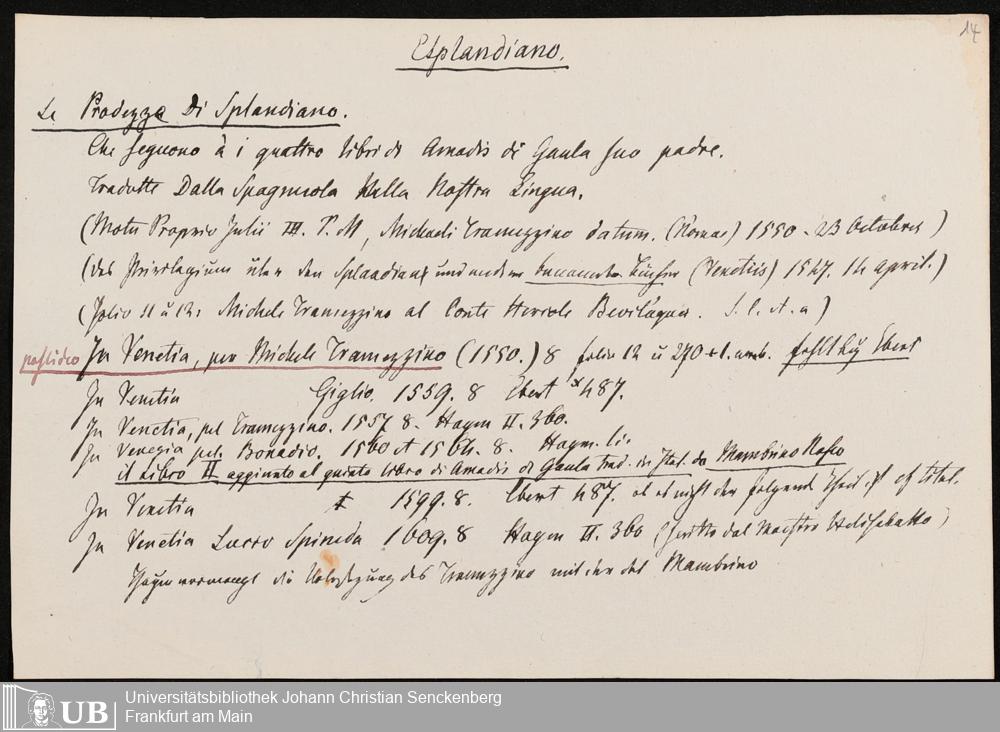 14
Esplandiano.
Le Prodezze Di Splandiano.
Che seguono à i quattro libri di Amadis di Gaula suo padre.
Tradotte Dalla Spagnuola Nella Nostra Lingua.
(Motu Proprio Julii III. P. M, Michaeli Tramezzino datum. (Romae) 1550 - 23 Octobris)
(das Privilegium über den Splandian und andere benannte Bücher (Venetiis) 1547. 14 April.)
(Folio 11 u 12: Michele Tramezzino al Conte Hercole Bevilaqua. S. l. et. a)
possideo In Venetia, per Michele Tramezzino (1550.) 8 folio 12 u 270 + 1. unb. fehlt bey Ebert
In Venetia Giglio. 1559. 8 Ebert 487.
In Venetia, pel Tramezzino. 1557 8. Hagen II. 360.
In Venegia pel. Bonadio. 1560 et 1564. 8. Hagen.
il libro II aggiunto al quinto libro di Amadis di Gaula trad. in Ital. da Mambrino Roseo
In Venetia 1599. 8. Ebert 487. ob es nicht der folgende Theil ist
In Venetia Lucio Spineda 1609. 8 Hagen II. 360 (Scritto dal Maestro Helisabatto)
Hagen vermengt die Uebersetzung des Tramezzino mit der des Mambrino
UB
Universitätsbibliothek Johann Christian Senckenberg
Frankfurt am Main